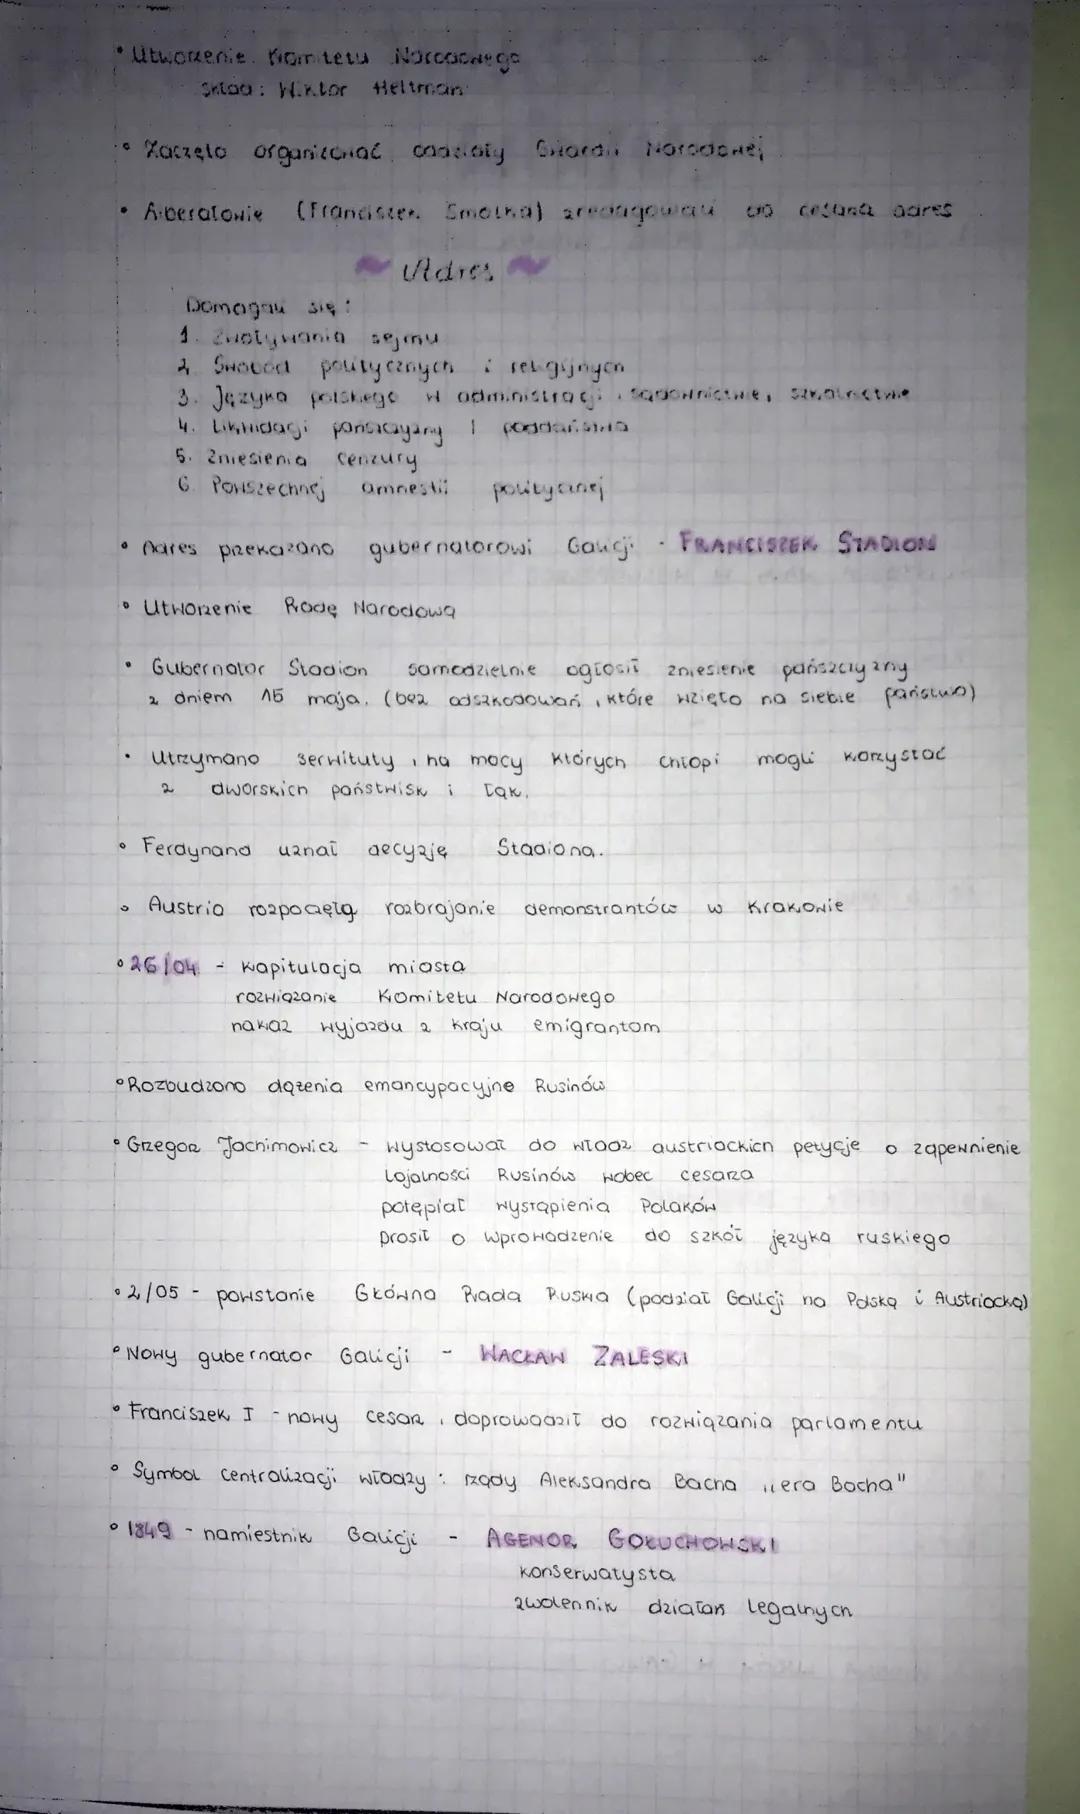 • Utworzenie Komitetu Narodowego
skład: Wiktor Heltman
• Zaczęto organizować oddziały Gwardii Narodowej
• Liberałowie (Franciszek Smolka) zredagowali do cesarza adres
~ Adres ~
Domagali się:
1. Zwoływania sejmu
2. Swobód politycznych i religijnych
3. Języka polskiego w administracji, sądownictwie, szkolnictwie
4. Likwidacji pańszczyzny i poddaństwa
5. Zniesienia cenzury
6. Powszechnej amnestii politycznej
• Adres przekazano gubernatorowi Galicji - FRANCISZEK STADION
• Utworzenie Radę Narodową
• Gubernator Stadion samodzielnie ogłosił zniesienie pańszczyzny
z dniem 15 maja. (bez odszkodowań, które wzięto na siebie państwo)
• Utrzymano serwituty, na mocy których chłopi mogli korzystać
z dworskich państwisk i łąk.
• Ferdynand uznał decyzję Stadiona.
• Austria rozpoczęłą rozbrajanie demonstrantów w Krakowie
• 26/04 - kapitulacja miasta
rozwiązanie Komitetu Narodowego
nakaz wyjazdu z kraju emigrantom
• Rozbudzono dążenia emancypacyjne Rusinów
• Grzegorz Jachimowicz - wystosował do władz austriackich petycje o zapewnienie
lojalności Rusinów wobec cesarza
potępiał wystąpienia Polaków
prosił o wprowadzenie do szkół języka ruskiego
• 2/05 - powstanie Główna Rada Ruska (podział Galicji na Polską i Austriacką)
• Nowy gubernator Galicji - WACŁAW ZALESKI
• Franciszek I - nowy cesarz, doprowadził do rozwiązania parlamentu
• Symbol centralizacji władzy: rządy Aleksandra Bacha „era Bacha"
• 1849 - namiestnik Galicji - AGENOR GOŁUCHOWSKI
konserwatysta
zwolennik działań legalnych